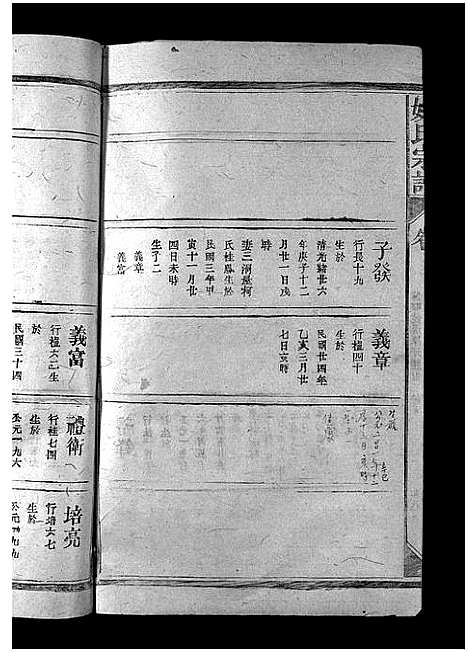 氏宗譜
卷
子發
行長十九
生於
清光緒廿六
年庚子十二
月廿一日戌
時
妻三洞墨柯
氏桂鳳生於
民國三年甲
寅十一月廿
四日未時
生子二
義章
義富
義章
行樞四十
生於
民國廿四年
乙亥三月廿
七日亥時
義富
行樞六二生
於
民國三十四
禮衛
行桂七四
生於
公元一九六
培亮
行培六七
生於
公元一九九